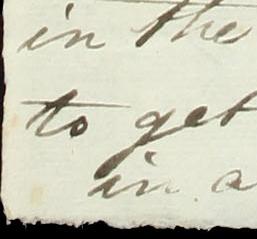 in the
to get
in a